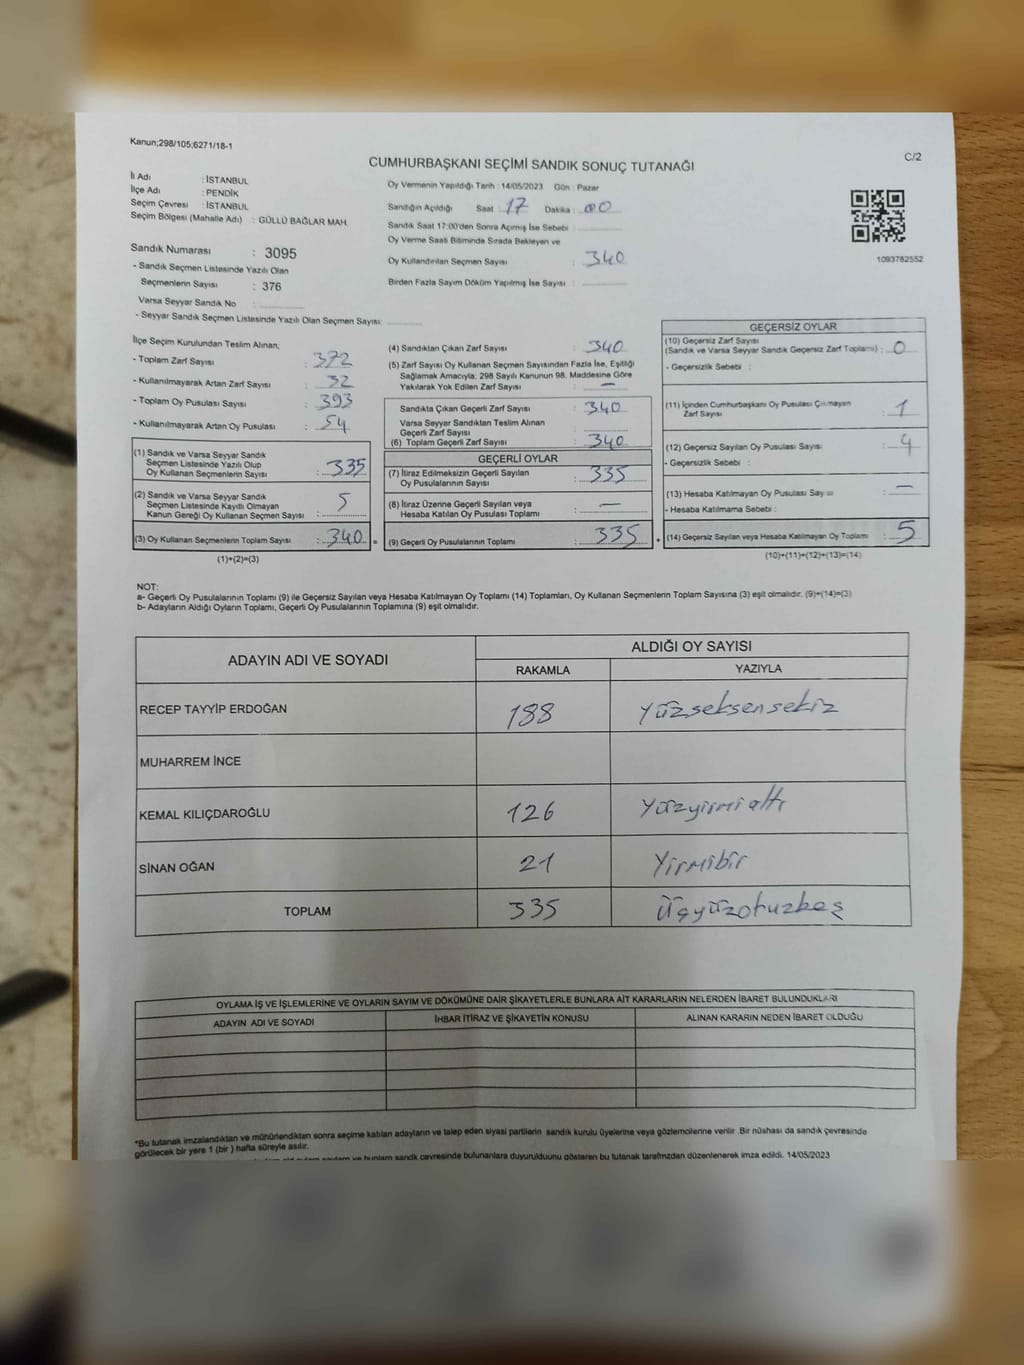 Kanun;298/105;6271/18-1
C/2
CUMHURBAŞKANI SEÇİMİ SANDIK SONUÇ TUTANAĞI
İli Adı : İSTANBUL
İlçe Adı : PENDİK
Seçim Çevresi : İSTANBUL
Seçim Bölgesi (Mahalle Adı) : GÜLLÜ BAĞLAR MAH.
Sandık Numarası : 3095
- Sandık Seçmen Listesinde Yazılı Olan
Seçmenlerin Sayısı : 376
Varsa Seyyar Sandık No :
- Seyyar Sandık Seçmen Listesinde Yazılı Olan Seçmen Sayısı:
Oy Vermenin Yapıldığı Tarih : 14/05/2023 Gün : Pazar
Sandığın Açıldığı Saat : 17 Dakika : 00
Sandık Saat 17:00'den Sonra Açımış İse Sebebi :
Oy Verme Saati Bitiminde Sırada Bekleyen ve
Oy Kullandırılan Seçmen Sayısı : 340
Birden Fazla Sayım Döküm Yapılmış İse Sayısı :
1093782552
İlçe Seçim Kurulundan Teslim Alınan;
- Toplam Zarf Sayısı : 372
- Kullanılmayarak Artan Zarf Sayısı : 32
- Toplam Oy Pusulası Sayısı : 393
- Kullanılmayarak Artan Oy Pusulası : 54
(1) Sandık ve Varsa Seyyar Sandık
Seçmen Listesinde Yazılı Olup
Oy Kullanan Seçmenlerin Sayısı : 335
(2) Sandık ve Varsa Seyyar Sandık
Seçmen Listesinde Kayıtlı Olmayan
Kanun Gereği Oy Kullanan Seçmen Sayısı : 5
(3) Oy Kullanan Seçmenlerin Toplam Sayısı : 340 =
(1)+(2)=(3)
(4) Sandıktan Çıkan Zarf Sayısı : 340
(5) Zarf Sayısı Oy Kullanan Seçmen Sayısından Fazla İse, Eşitliği
Sağlamak Amacıyla; 298 Sayılı Kanunun 98. Maddesine Göre
Yakılarak Yok Edilen Zarf Sayısı : —
Sandıkta Çıkan Geçerli Zarf Sayısı : 340
Varsa Seyyar Sandıktan Teslim Alınan
Geçerli Zarf Sayısı :
(6) Toplam Geçerli Zarf Sayısı : 340
GEÇERLİ OYLAR
(7) İtiraz Edilmeksizin Geçerli Sayılan
Oy Pusulalarının Sayısı : 335
(8) İtiraz Üzerine Geçerli Sayılan veya
Hesaba Katılan Oy Pusulası Toplamı : —
(9) Geçerli Oy Pusulalarının Toplamı : 335 +
GEÇERSİZ OYLAR
(10) Geçersiz Zarf Sayısı
(Sandık ve Varsa Seyyar Sandık Geçersiz Zarf Toplamı) : 0
- Geçersizlik Sebebi :
(11) İçinden Cumhurbaşkanı Oy Pusulası Çıkmayan
Zarf Sayısı : 1
(12) Geçersiz Sayılan Oy Pusulası Sayısı : 4
- Geçersizlik Sebebi :
(13) Hesaba Katılmayan Oy Pusulası Sayısı : —
- Hesaba Katılmama Sebebi :
(14) Geçersiz Sayılan veya Hesaba Katılmayan Oy Toplamı : 5
(10)+(11)+(12)+(13)=(14)
NOT:
a- Geçerli Oy Pusulalarının Toplamı (9) ile Geçersiz Sayılan veya Hesaba Katılmayan Oy Toplamı (14) Toplamları, Oy Kullanan Seçmenlerin Toplam Sayısına (3) eşit olmalıdır. (9)+(14)=(3)
b- Adayların Aldığı Oyların Toplamı, Geçerli Oy Pusulalarının Toplamına (9) eşit olmalıdır.
ADAYIN ADI VE SOYADI
ALDIĞI OY SAYISI
RAKAMLA YAZIYLA
RECEP TAYYİP ERDOĞAN 188 Yüzseksensekiz
MUHARREM İNCE
KEMAL KILIÇDAROĞLU 126 Yüzyirmi altı
SİNAN OĞAN 21 Yirmibir
TOPLAM 335 Üçyüzotuzbeş
OYLAMA İŞ VE İŞLEMLERİNE VE OYLARIN SAYIM VE DÖKÜMÜNE DAİR ŞİKAYETLERLE BUNLARA AİT KARARLARIN NELERDEN İBARET BULUNDUKLARI
ADAYIN ADI VE SOYADI İHBAR İTİRAZ VE ŞİKAYETİN KONUSU ALINAN KARARIN NEDEN İBARET OLDUĞU
*Bu tutanak imzalandıktan ve mühürlendikten sonra seçime katılan adayların ve talep eden siyasi partilerin sandık kurulu üyelerine veya gözlemcilerine verilir .Bir nüshası da sandık çevresinde
görülecek bir yere 1 (bir ) hafta süreyle asılır.
ve bunların sandık çevresinde bulunanlara duyurulduunu gösteren bu tutanak tarafmzdan düzenlenerek imza edildi. 14/05/2023